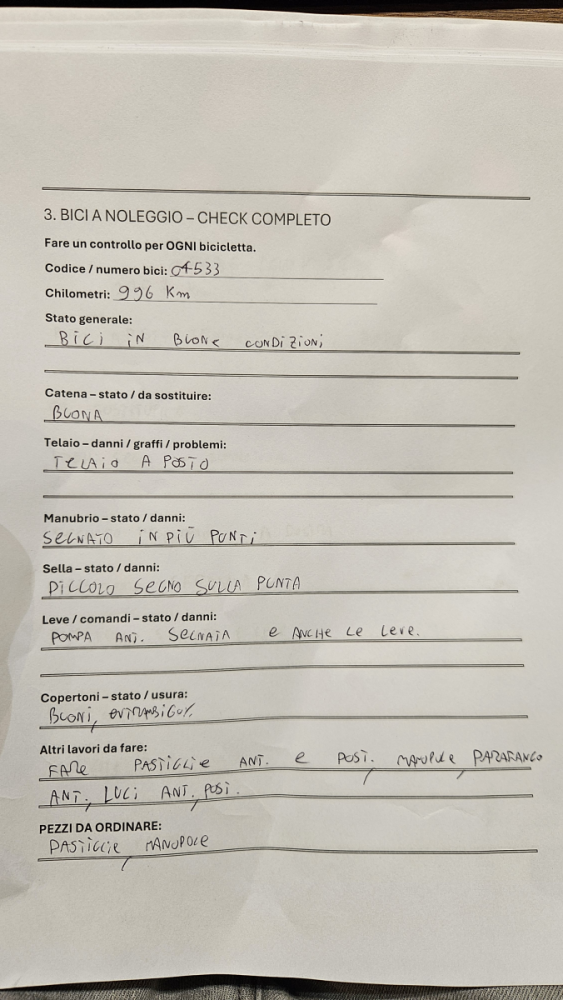 3. BICI A NOLEGGIO – CHECK COMPLETO
Fare un controllo per OGNI bicicletta.
Codice / numero bici: 04533
Chilometri: 996 Km
Stato generale:
BICI IN BUONE CONDIZIONI
Catena – stato / da sostituire:
BUONA
Telaio – danni / graffi / problemi:
TELAIO A POSTO
Manubrio – stato / danni:
SEGNATO IN PIÙ PUNTI
Sella – stato / danni:
PICCOLO SEGNO SULLA PUNTA
Leve / comandi – stato / danni:
POMPA ANT. SEGNATA E ANCHE LE LEVE.
Copertoni – stato / usura:
BUONI,
Altri lavori da fare:
FARE PASTIGLIE ANT. E POST., MANOPOLE, PARAFANGO
ANT., LUCI ANT., POST.
PEZZI DA ORDINARE:
PASTIGLIE, MANOPOLE